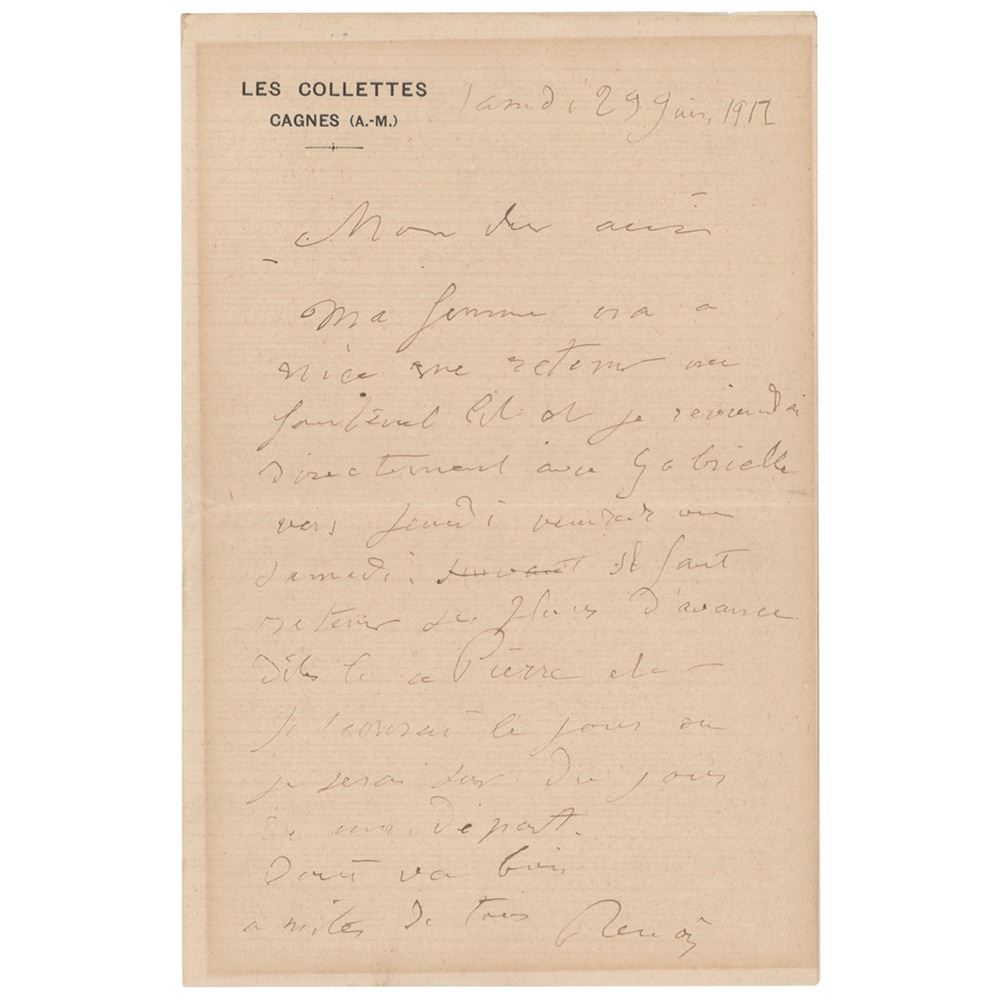 LES COLLETTES
CAGNES (A.-M.)
Samedi 29 Juin, 1912
Mon cher ami
Ma femme va a
Nice me retenir un
fauteuil lit et je reviendrai
directement avec Gabrielle
vers jeudi vendredi ou
Samedi. suivant Il faut
retenir ses places d'avance
dites le a Pierre et
Je ecrirai le jour ou
je serai sur du jour
de mon départ.
Tout va bien
amities de tous Renoir